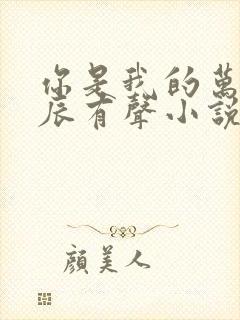 你是我的萬
辰有聲小說
顏美人